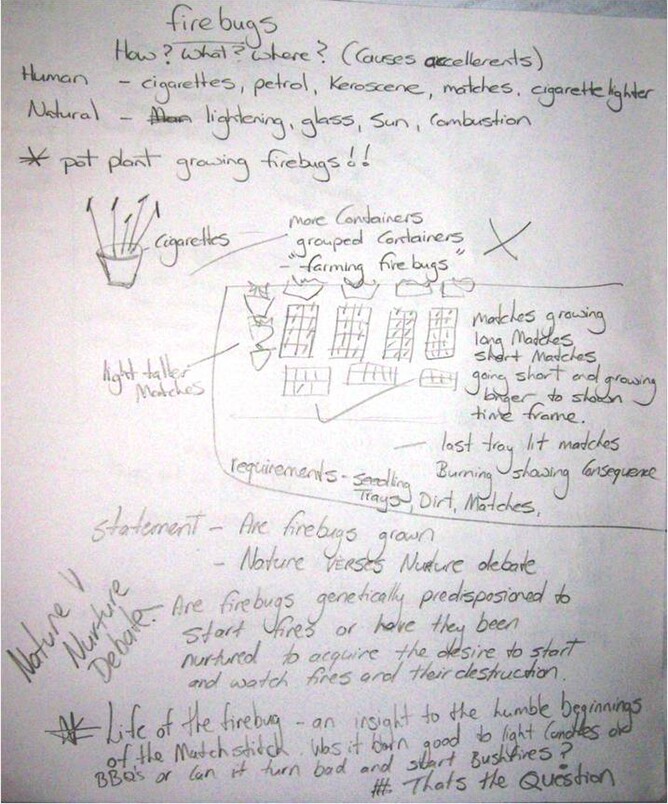 firebugs
How? What? Where? (Causes accellerents)
Human - cigarettes, petrol, Keroscene, matches, cigarette lighter
Natural - Man lightening, glass, Sun, Combustion
* pot plant growing firebugs!!
Cigarettes
more Containers
grouped Containers
- "farming firebugs"
matches growing
long Matches
short Matches
going short and growing
longer to show
time frame.
light taller
Matches
last tray lit matches
Burning showing Consequence
requirements - Seedling
Trays, Dirt, Matches,
Statement - Are firebugs grown
- Nature VERSES Nurture debate
Nature V
Nurture
Debate -
Are firebugs genetically predisposioned to
Start fires or have they been
nurtured to acquire the desire to start
and watch fires and their destruction.
* Life of the firebug - an insight to the humble beginnings
of the Matchstitch Was it born good to light Candles and
BBQ's or Can it turn bad and start Bushfires?
#. Thats the Question